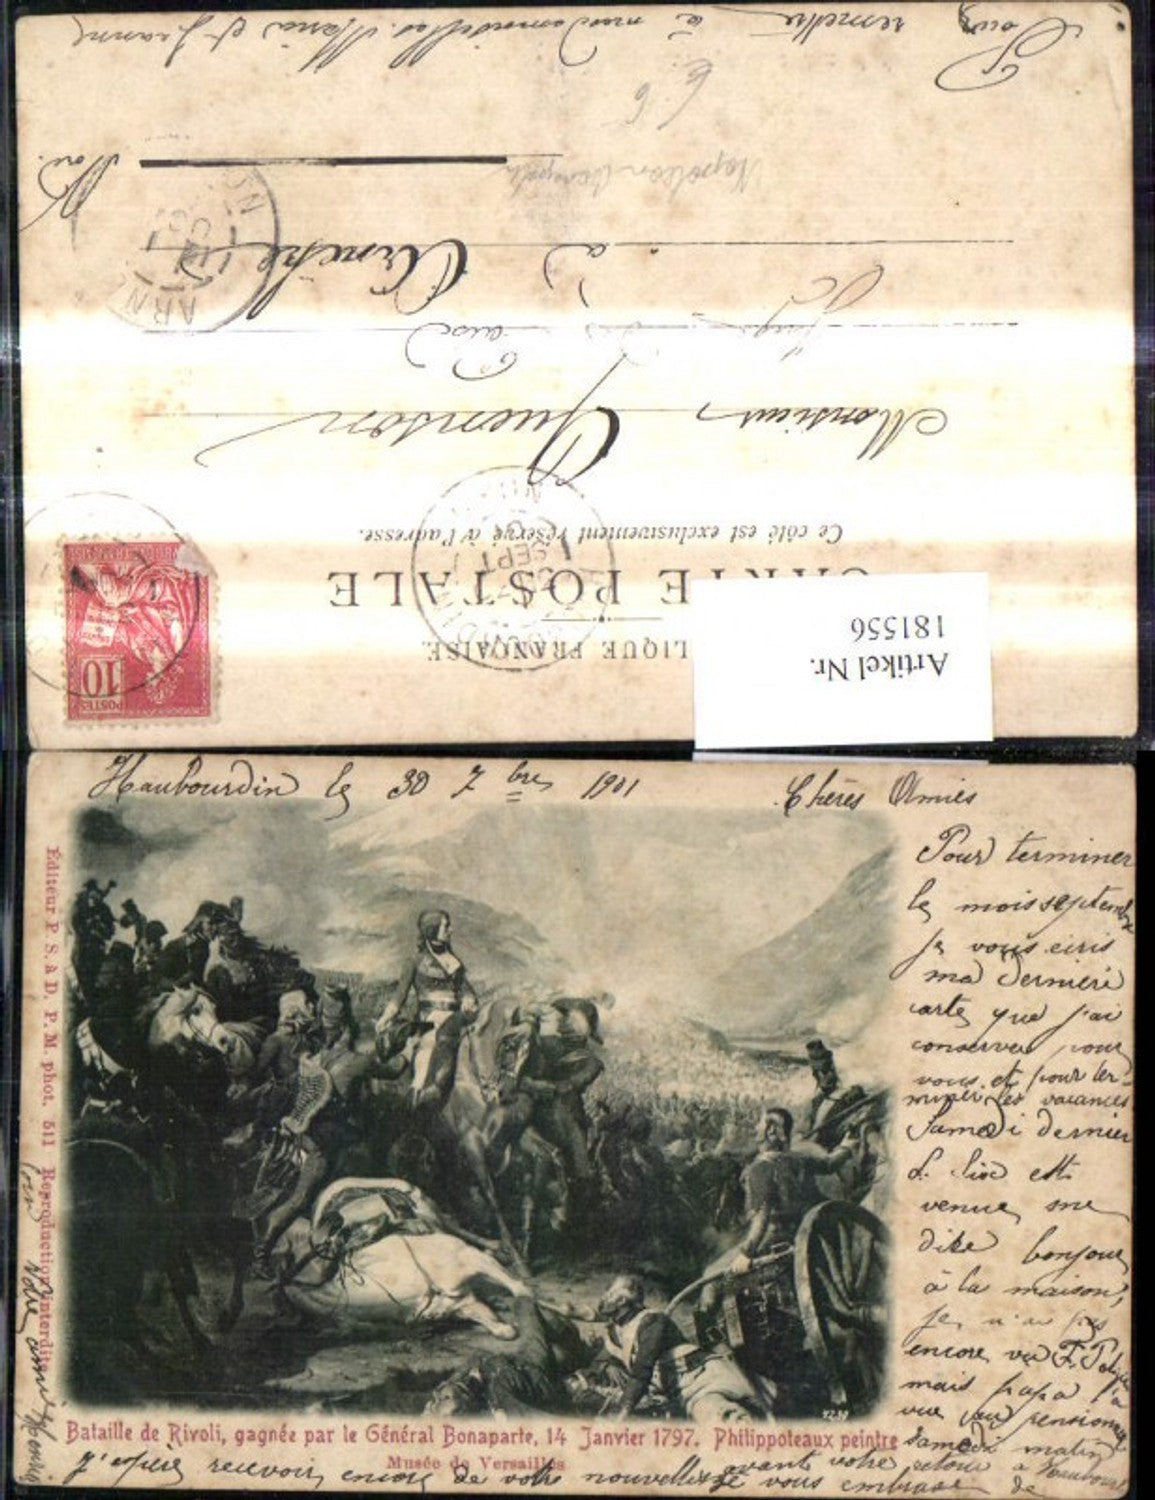 RÉPUBLIQUE FRANÇAISE.
CARTE POSTALE
Ce côté est exclusivement réservé à l'adresse.
Monsieur
Juge de Paix
à
Nord.
Pour remettre à mesdemoiselles Maria et Jeanne
Napoleon
SEPT
POSTES
10
Artikel Nr.
181556
Haubourdin le 30 7bre 1901
Chères Amies
Pour terminer
le mois septembre
je vous écris
ma dernière
carte que j'ai
conservée pour
vous et pour ter-
miner les vacances
Samedi dernier
est
venue me
dire bonjour
à la maison,
je n'ai pas
encore vu
mais papa l'a
vue au pensionnat
samedi matin
avant votre retour à Haubourdin
J'espère recevoir encore de votre nouvelles
je vous embrasse de
Votre amie
Éditeur P. S. à D. P. M. phot. 511 Reproduction interdite
Bataille de Rivoli, gagnée par le Général Bonaparte, 14 Janvier 1797. Philippoteaux peintre
Musée de Versailles